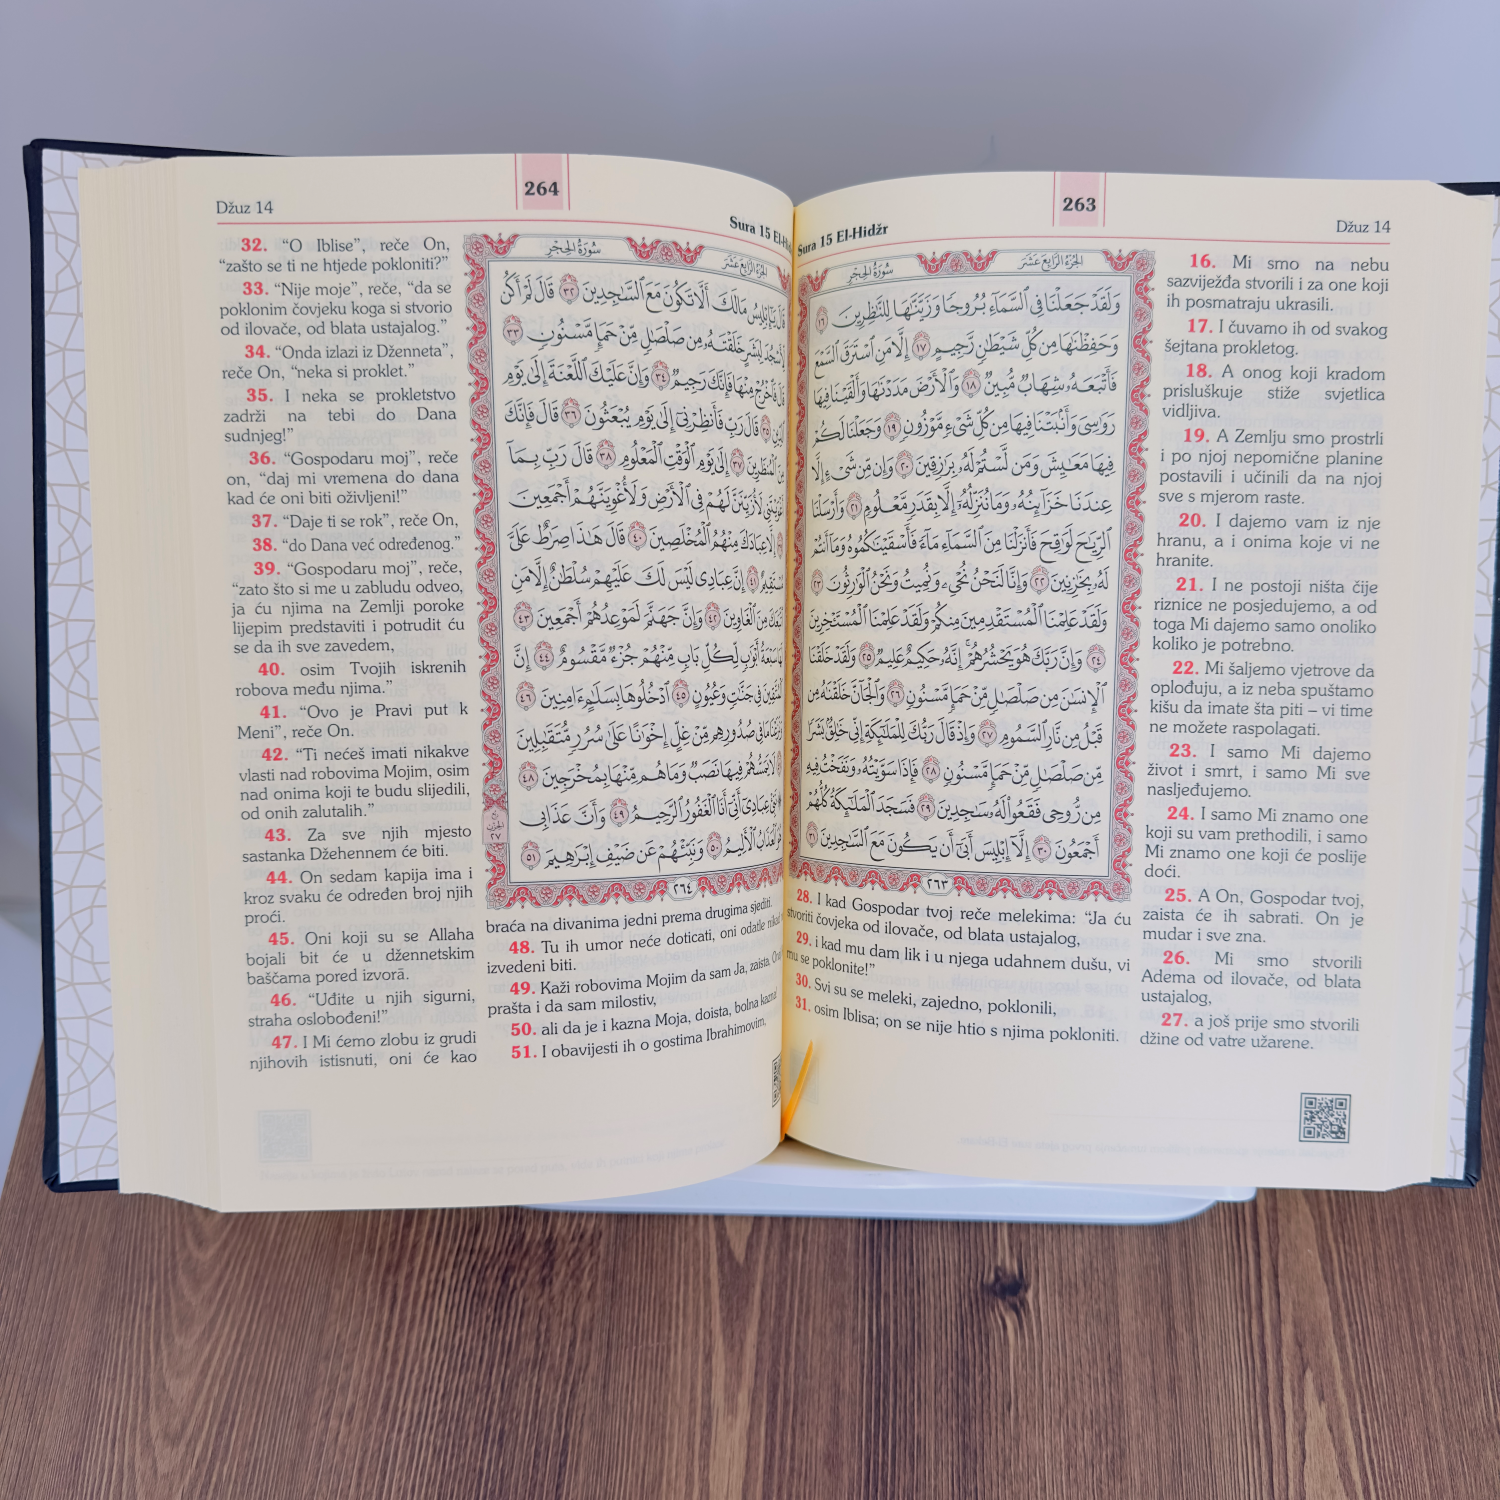 263
Džuz 14
Sura 15 El-Hidžr
سُورَةُ الحِجْرِ
الجُزْءُ الرَّابِعَ عَشَرَ
وَلَقَدْ جَعَلْنَا فِي ٱلسَّمَآءِ بُرُوجًا وَزَيَّنَّٰهَا لِلنَّٰظِرِينَ ١٦
وَحَفِظْنَٰهَا مِن كُلِّ شَيْطَٰنٍ رَّجِيمٍ ١٧ إِلَّا مَنِ ٱسْتَرَقَ ٱلسَّمْعَ
فَأَتْبَعَهُۥ شِهَابٌ مُّبِينٌ ١٨ وَٱلْأَرْضَ مَدَدْنَٰهَا وَأَلْقَيْنَا فِيهَا
رَوَٰسِيَ وَأَنۢبَتْنَا فِيهَا مِن كُلِّ شَيْءٍ مَّوْزُونٍ ١٩ وَجَعَلْنَا لَكُمْ
فِيهَا مَعَٰيِشَ وَمَن لَّسْتُمْ لَهُۥ بِرَٰزِقِينَ ٢٠ وَإِن مِّن شَيْءٍ إِلَّا
عِندَنَا خَزَآئِنُهُۥ وَمَا نُنَزِّلُهُۥٓ إِلَّا بِقَدَرٍ مَّعْلُومٍ ٢١ وَأَرْسَلْنَا
ٱلرِّيَٰحَ لَوَٰقِحَ فَأَنزَلْنَا مِنَ ٱلسَّمَآءِ مَآءً فَأَسْقَيْنَٰكُمُوهُ وَمَآ أَنتُمْ
لَهُۥ بِخَٰزِنِينَ ٢٢ وَإِنَّا لَنَحْنُ نُحْيِۦ وَنُمِيتُ وَنَحْنُ ٱلْوَٰرِثُونَ ٢٣
وَلَقَدْ عَلِمْنَا ٱلْمُسْتَقْدِمِينَ مِنكُمْ وَلَقَدْ عَلِمْنَا ٱلْمُسْتَـْٔخِرِينَ
٢٤ وَإِنَّ رَبَّكَ هُوَ يَحْشُرُهُمْ إِنَّهُۥ حَكِيمٌ عَلِيمٌ ٢٥ وَلَقَدْ خَلَقْنَا
ٱلْإِنسَٰنَ مِن صَلْصَٰلٍ مِّنْ حَمَإٍ مَّسْنُونٍ ٢٦ وَٱلْجَآنَّ خَلَقْنَٰهُ مِن
قَبْلُ مِن نَّارِ ٱلسَّمُومِ ٢٧ وَإِذْ قَالَ رَبُّكَ لِلْمَلَٰٓئِكَةِ إِنِّي خَٰلِقٌۢ بَشَرًا
مِّن صَلْصَٰلٍ مِّنْ حَمَإٍ مَّسْنُونٍ ٢٨ فَإِذَا سَوَّيْتُهُۥ وَنَفَخْتُ فِيهِ
مِن رُّوحِي فَقَعُوا۟ لَهُۥ سَٰجِدِينَ ٢٩ فَسَجَدَ ٱلْمَلَٰٓئِكَةُ كُلُّهُمْ
أَجْمَعُونَ ٣٠ إِلَّآ إِبْلِيسَ أَبَىٰٓ أَن يَكُونَ مَعَ ٱلسَّٰجِدِينَ ٣١
٢٦٣
16. Mi smo na nebu
sazviježđa stvorili i za one koji
ih posmatraju ukrasili.
17. I čuvamo ih od svakog
šejtana prokletog.
18. A onog koji kradom
prisluškuje stiže svjetlica
vidljiva.
19. A Zemlju smo prostrli
i po njoj nepomične planine
postavili i učinili da na njoj
sve s mjerom raste.
20. I dajemo vam iz nje
hranu, a i onima koje vi ne
hranite.
21. I ne postoji ništa čije
riznice ne posjedujemo, a od
toga Mi dajemo samo onoliko
koliko je potrebno.
22. Mi šaljemo vjetrove da
oplođuju, a iz neba spuštamo
kišu da imate šta piti – vi time
ne možete raspolagati.
23. I samo Mi dajemo
život i smrt, i samo Mi sve
nasljeđujemo.
24. I samo Mi znamo one
koji su vam prethodili, i samo
Mi znamo one koji će poslije
doći.
25. A On, Gospodar tvoj,
zaista će ih sabrati. On je
mudar i sve zna.
26. Mi smo stvorili
Adema od ilovače, od blata
ustajalog,
27. a još prije smo stvorili
džine od vatre užarene.
28. I kad Gospodar tvoj reče melekima: “Ja ću
stvoriti čovjeka od ilovače, od blata ustajalog,
29. i kad mu dam lik i u njega udahnem dušu, vi
mu se poklonite!”
30. Svi su se meleki, zajedno, poklonili,
31. osim Iblisa; on se nije htio s njima pokloniti.
264
Džuz 14
Sura 15
سُورَةُ الحِجْرِ
الجُزْءُ الرَّابِعَ عَشَرَ
قَالَ يَٰٓإِبْلِيسُ مَا لَكَ أَلَّا تَكُونَ مَعَ ٱلسَّٰجِدِينَ ٣٢ قَالَ لَمْ أَكُن
لِّأَسْجُدَ لِبَشَرٍ خَلَقْتَهُۥ مِن صَلْصَٰلٍ مِّنْ حَمَإٍ مَّسْنُونٍ ٣٣
قَالَ فَٱخْرُجْ مِنْهَا فَإِنَّكَ رَجِيمٌ ٣٤ وَإِنَّ عَلَيْكَ ٱللَّعْنَةَ إِلَىٰ يَوْمِ
٣٥ قَالَ رَبِّ فَأَنظِرْنِيٓ إِلَىٰ يَوْمِ يُبْعَثُونَ ٣٦ قَالَ فَإِنَّكَ
ٱلْمُنظَرِينَ ٣٧ إِلَىٰ يَوْمِ ٱلْوَقْتِ ٱلْمَعْلُومِ ٣٨ قَالَ رَبِّ بِمَآ
لَأُزَيِّنَنَّ لَهُمْ فِي ٱلْأَرْضِ وَلَأُغْوِيَنَّهُمْ أَجْمَعِينَ
إِلَّا عِبَادَكَ مِنْهُمُ ٱلْمُخْلَصِينَ ٤٠ قَالَ هَٰذَا صِرَٰطٌ عَلَيَّ
٤١ إِنَّ عِبَادِي لَيْسَ لَكَ عَلَيْهِمْ سُلْطَٰنٌ إِلَّا مَنِ
مِنَ ٱلْغَاوِينَ ٤٢ وَإِنَّ جَهَنَّمَ لَمَوْعِدُهُمْ أَجْمَعِينَ ٤٣
سَبْعَةُ أَبْوَٰبٍ لِّكُلِّ بَابٍ مِّنْهُمْ جُزْءٌ مَّقْسُومٌ ٤٤ إِنَّ
ٱلْمُتَّقِينَ فِي جَنَّٰتٍ وَعُيُونٍ ٤٥ ٱدْخُلُوهَا بِسَلَٰمٍ ءَامِنِينَ ٤٦
مَا فِي صُدُورِهِم مِّنْ غِلٍّ إِخْوَٰنًا عَلَىٰ سُرُرٍ مُّتَقَٰبِلِينَ
لَا يَمَسُّهُمْ فِيهَا نَصَبٌ وَمَا هُم مِّنْهَا بِمُخْرَجِينَ ٤٨
عِبَادِيٓ أَنِّيٓ أَنَا ٱلْغَفُورُ ٱلرَّحِيمُ ٤٩ وَأَنَّ عَذَابِي
ٱلْعَذَابُ ٱلْأَلِيمُ ٥٠ وَنَبِّئْهُمْ عَن ضَيْفِ إِبْرَٰهِيمَ ٥١
٢٦٤
32. “O Iblise”, reče On,
“zašto se ti ne htjede pokloniti?”
33. “Nije moje”, reče, “da se
poklonim čovjeku koga si stvorio
od ilovače, od blata ustajalog.”
34. “Onda izlazi iz Dženneta”,
reče On, “neka si proklet.”
35. I neka se prokletstvo
zadrži na tebi do Dana
sudnjeg!”
36. “Gospodaru moj”, reče
on, “daj mi vremena do dana
kad će oni biti oživljeni!”
37. “Daje ti se rok”, reče On,
38. “do Dana već određenog.”
39. “Gospodaru moj”, reče,
“zato što si me u zabludu odveo,
ja ću njima na Zemlji poroke
lijepim predstaviti i potrudit ću
se da ih sve zavedem,
40. osim Tvojih iskrenih
robova među njima.”
41. “Ovo je Pravi put k
Meni”, reče On.
42. “Ti nećeš imati nikakve
vlasti nad robovima Mojim, osim
nad onima koji te budu slijedili,
od onih zalutalih.”
43. Za sve njih mjesto
sastanka Džehennem će biti.
44. On sedam kapija ima i
kroz svaku će određen broj njih
proći.
45. Oni koji su se Allaha
bojali bit će u džennetskim
baščama pored izvorā.
46. “Uđite u njih sigurni,
straha oslobođeni!”
47. I Mi ćemo zlobu iz grudi
njihovih istisnuti, oni će kao
braća na divanima jedni prema drugima sjediti.
48. Tu ih umor neće doticati, oni odatle
izvedeni biti.
49. Kaži robovima Mojim da sam Ja, zaista,
prašta i da sam milostiv,
50. ali da je i kazna Moja, doista, bolna kazna!
51. I obavijesti ih o gostima Ibrahimovim.